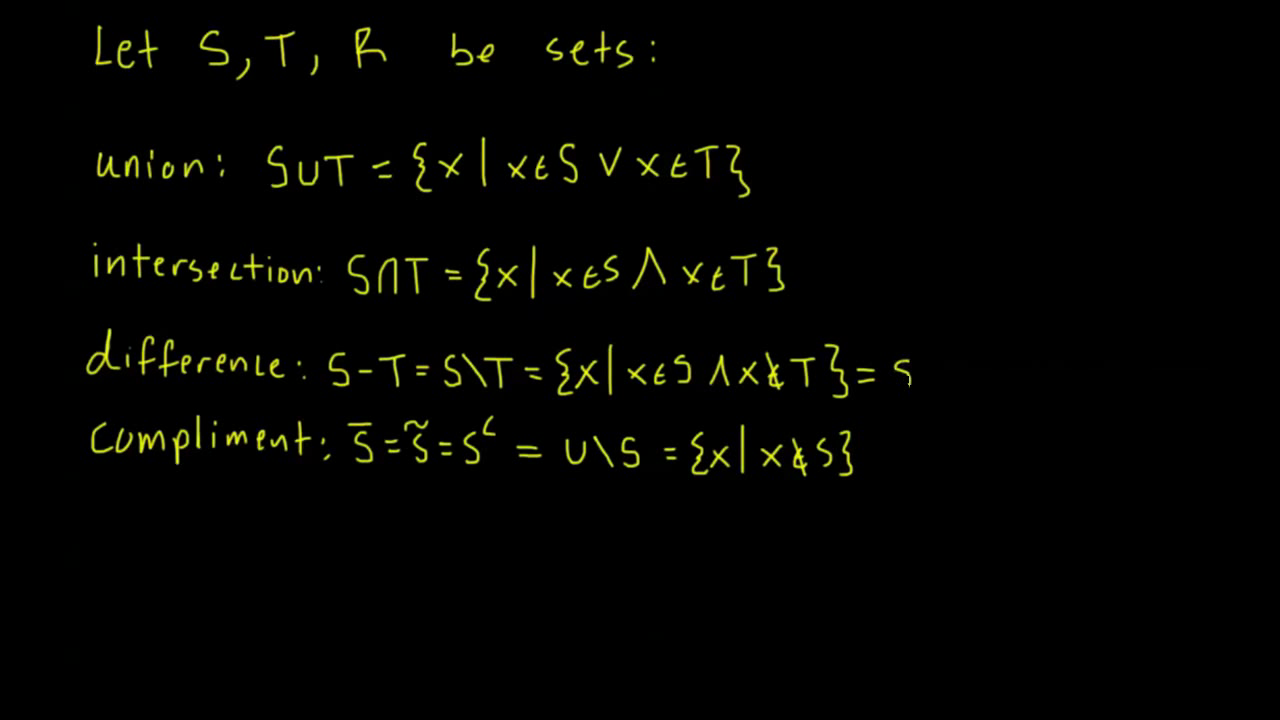 Let S, T, R be sets:
union: S∪T = {x | x∈S ∨ x∈T}
intersection: S∩T = {x | x∈S ∧ x∈T}
difference: S-T = S\T = {x | x∈S ∧ x∉T} = S
compliment: S̅ = S̃ = Sᶜ = U\S = {x | x∉S}